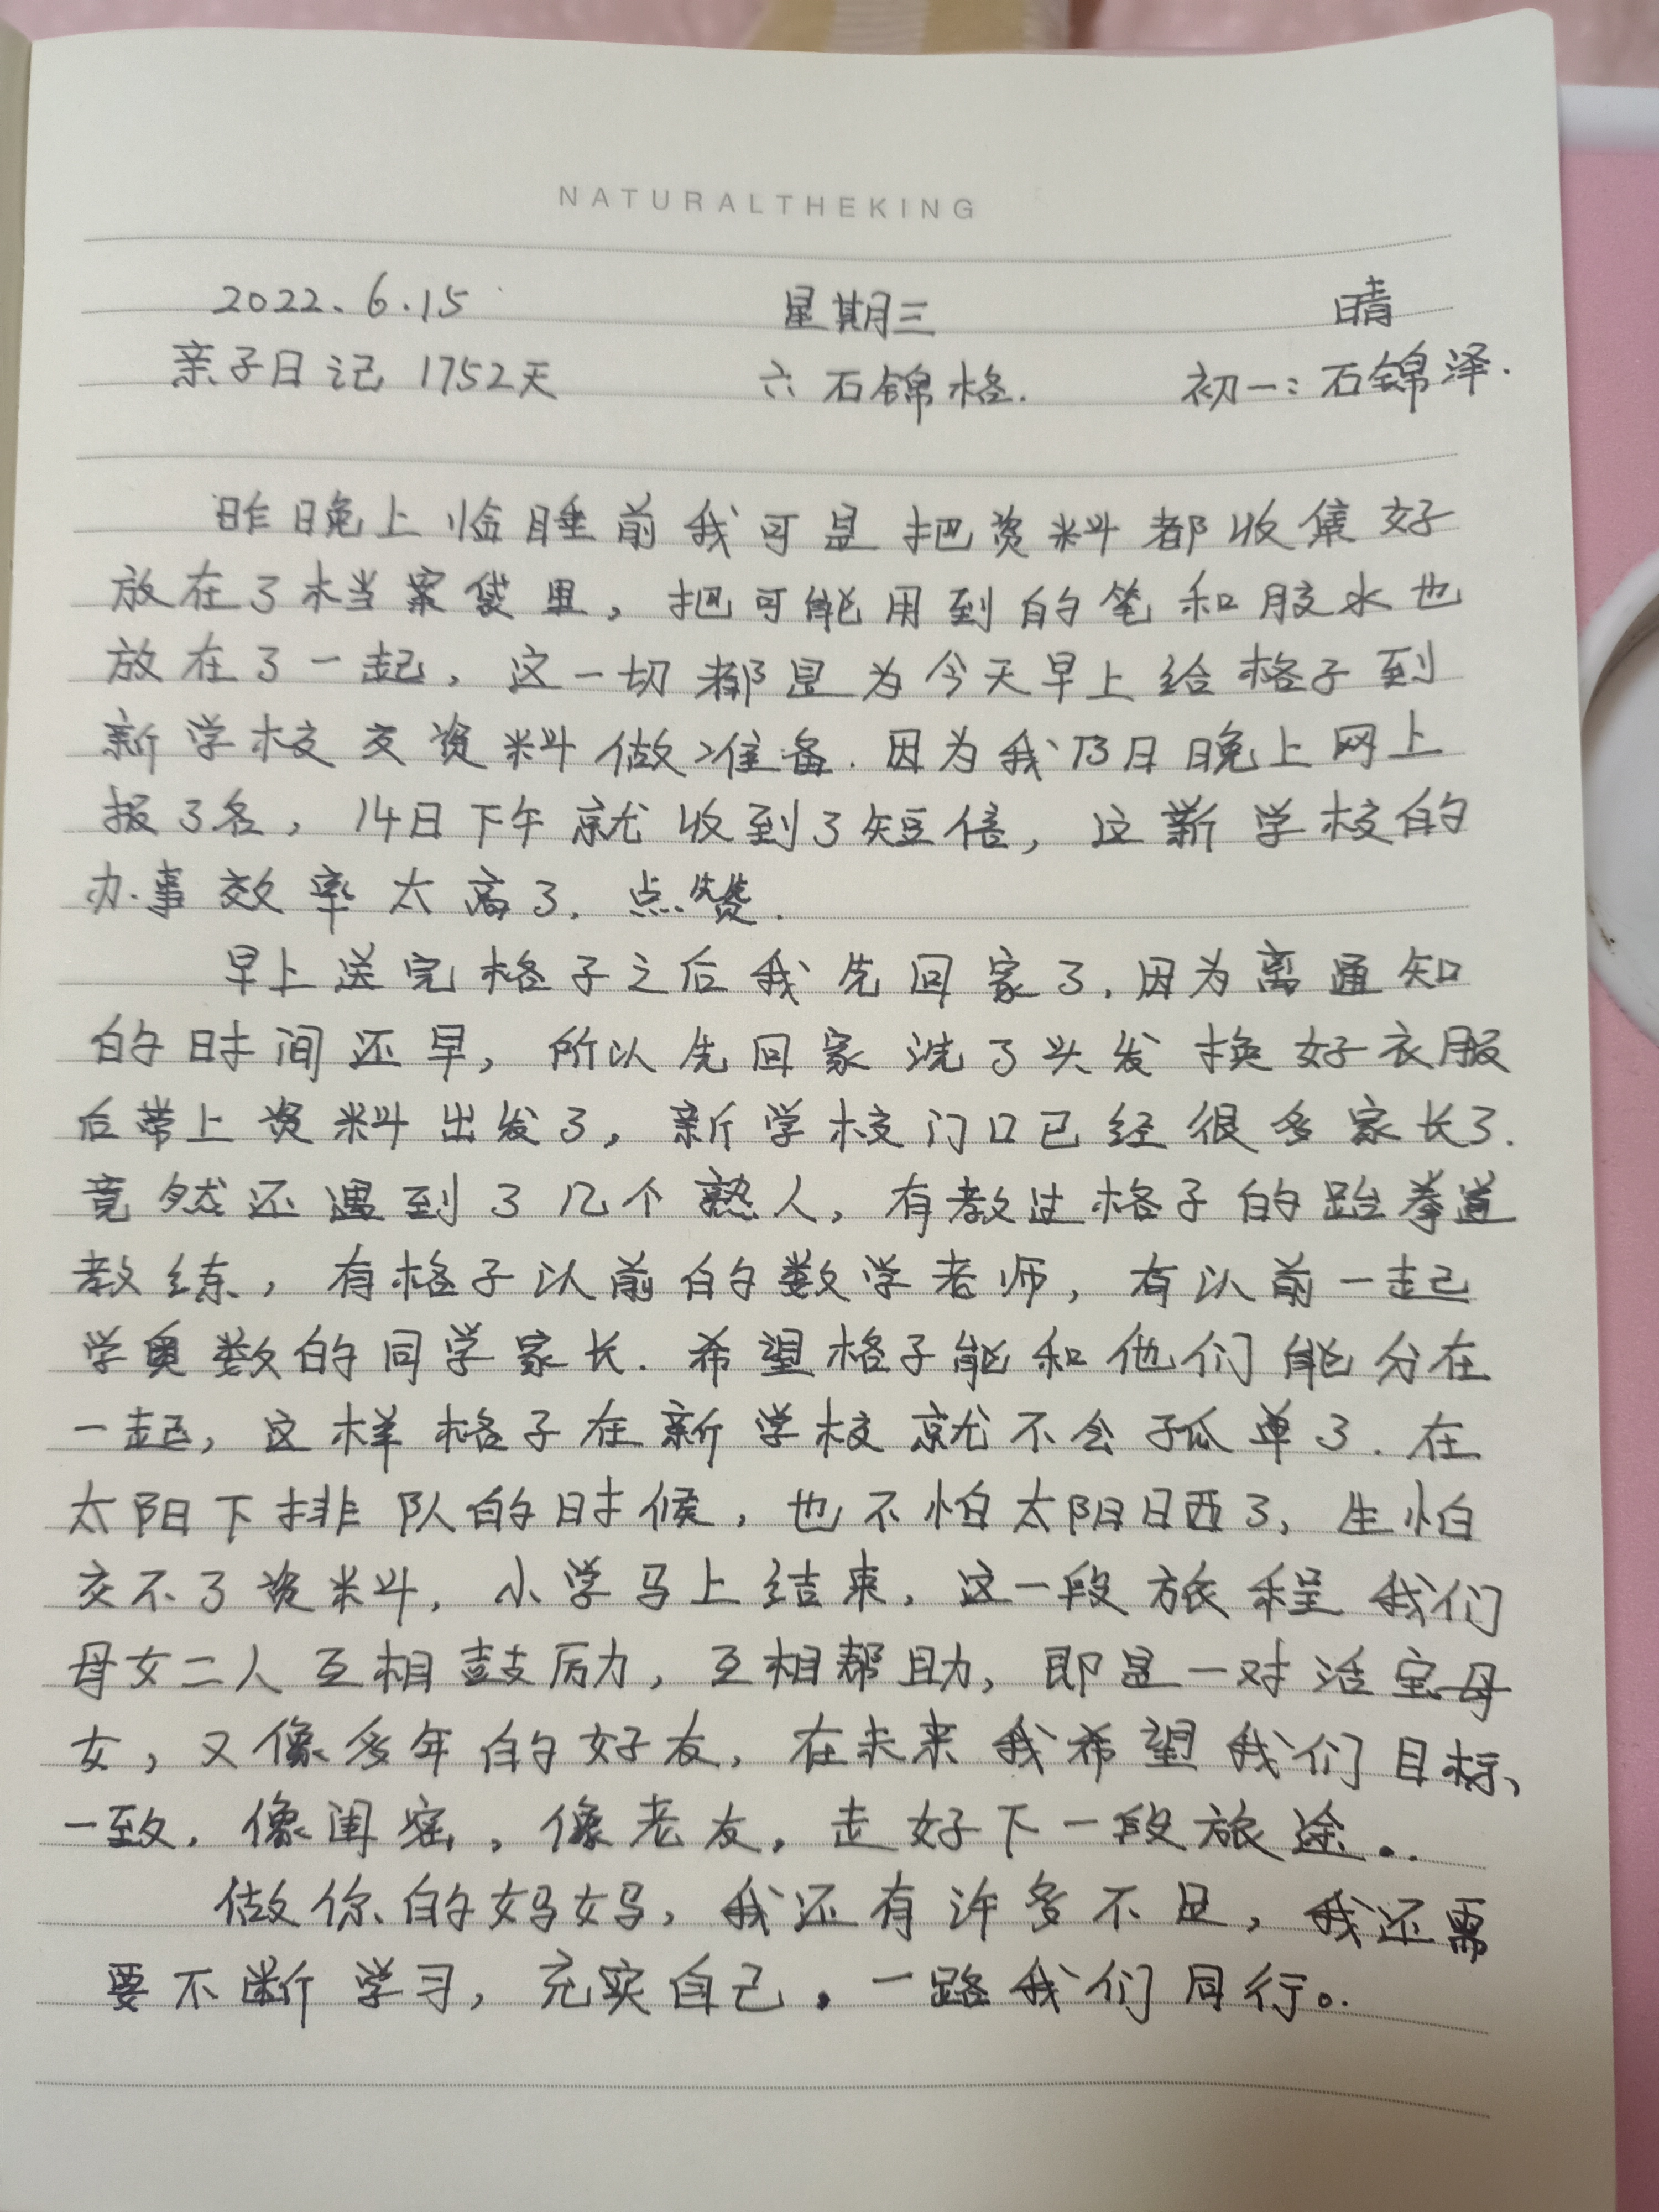 NATURALTHEKING
2022.6.15 星期三 晴
亲子日记 1752天 六 石锦格. 初一:石锦泽.
昨晚上临睡前我可是把资料都收集好
放在了档案袋里,把可能用到的笔和胶水也
放在了一起,这一切都是为今天早上给格子到
新学校交资料做准备.因为我13日晚上网上
报了名,14日下午就收到了短信,这新学校的
办事效率太高了.点赞.
早上送完格子之后我先回家了.因为离通知
的时间还早,所以先回家洗了头发换好衣服
后带上资料出发了,新学校门口已经很多家长了.
竟然还遇到了几个熟人,有教过格子的跆拳道
教练,有格子以前的数学老师,有以前一起
学奥数的同学家长.希望格子能和他们能分在
一起,这样格子在新学校就不会孤单了.在
太阳下排队的时候,也不怕太阳晒了,生怕
交不了资料,小学马上结束,这一段旅程我们
母女二人互相鼓励,互相帮助,即是一对活宝母
女,又像多年的好友,在未来我希望我们目标、
一致.像闺密,像老友,走好下一段旅途..
做你的妈妈,我还有许多不足,我还需
要不断学习,充实自己.一路我们同行。.